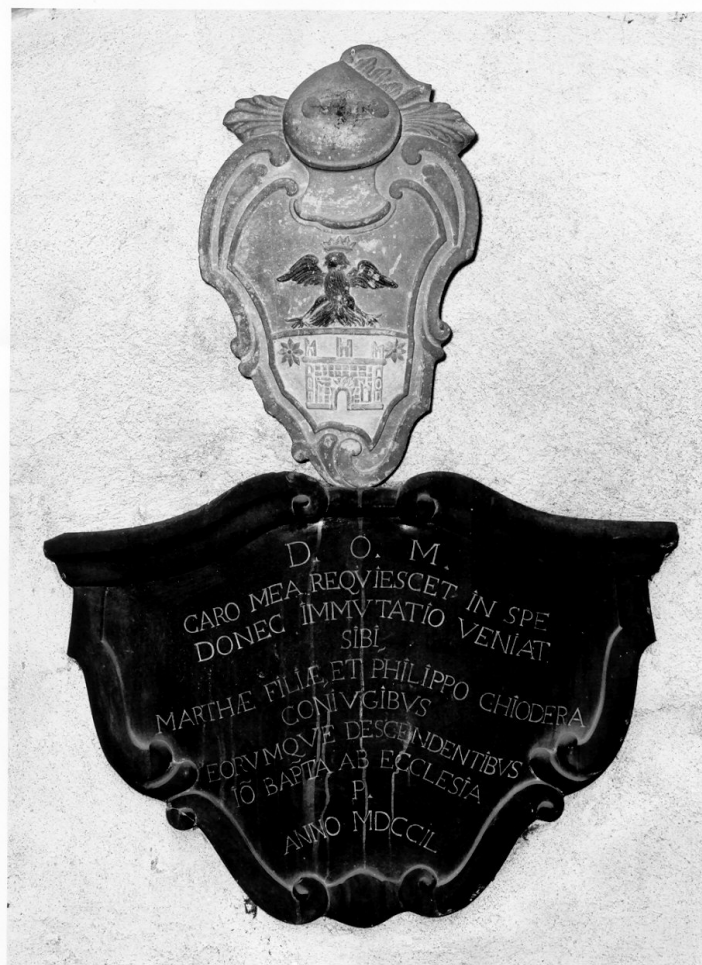 D. O. M.
CARO MEA REQVIESCET IN SPE
DONEC IMMVTATIO VENIAT.
SIBI
MARTHÆ FILIÆ, ET PHILIPPO CHIODERA
CONIVGIBVS
EORVMQVE DESCENDENTIBVS
IÕ BAPTA AB ECCLESIA
P.
ANNO MDCCIL